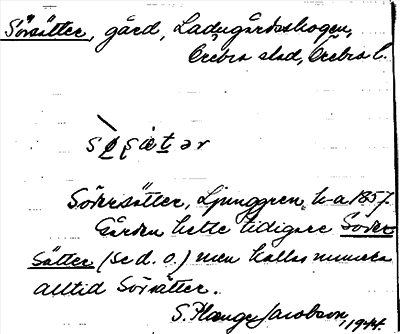 Sörsätter, gård, Ladugårdsskogen,
Örebro stad, Örebro l.
Södersätter, Ljunggren, h-a 1857.
Gården hette tidigare Söder
sätter (se d. o.) men kallas numera
alltid Sörsätter.
S. Plænge Jacobson, 1944.